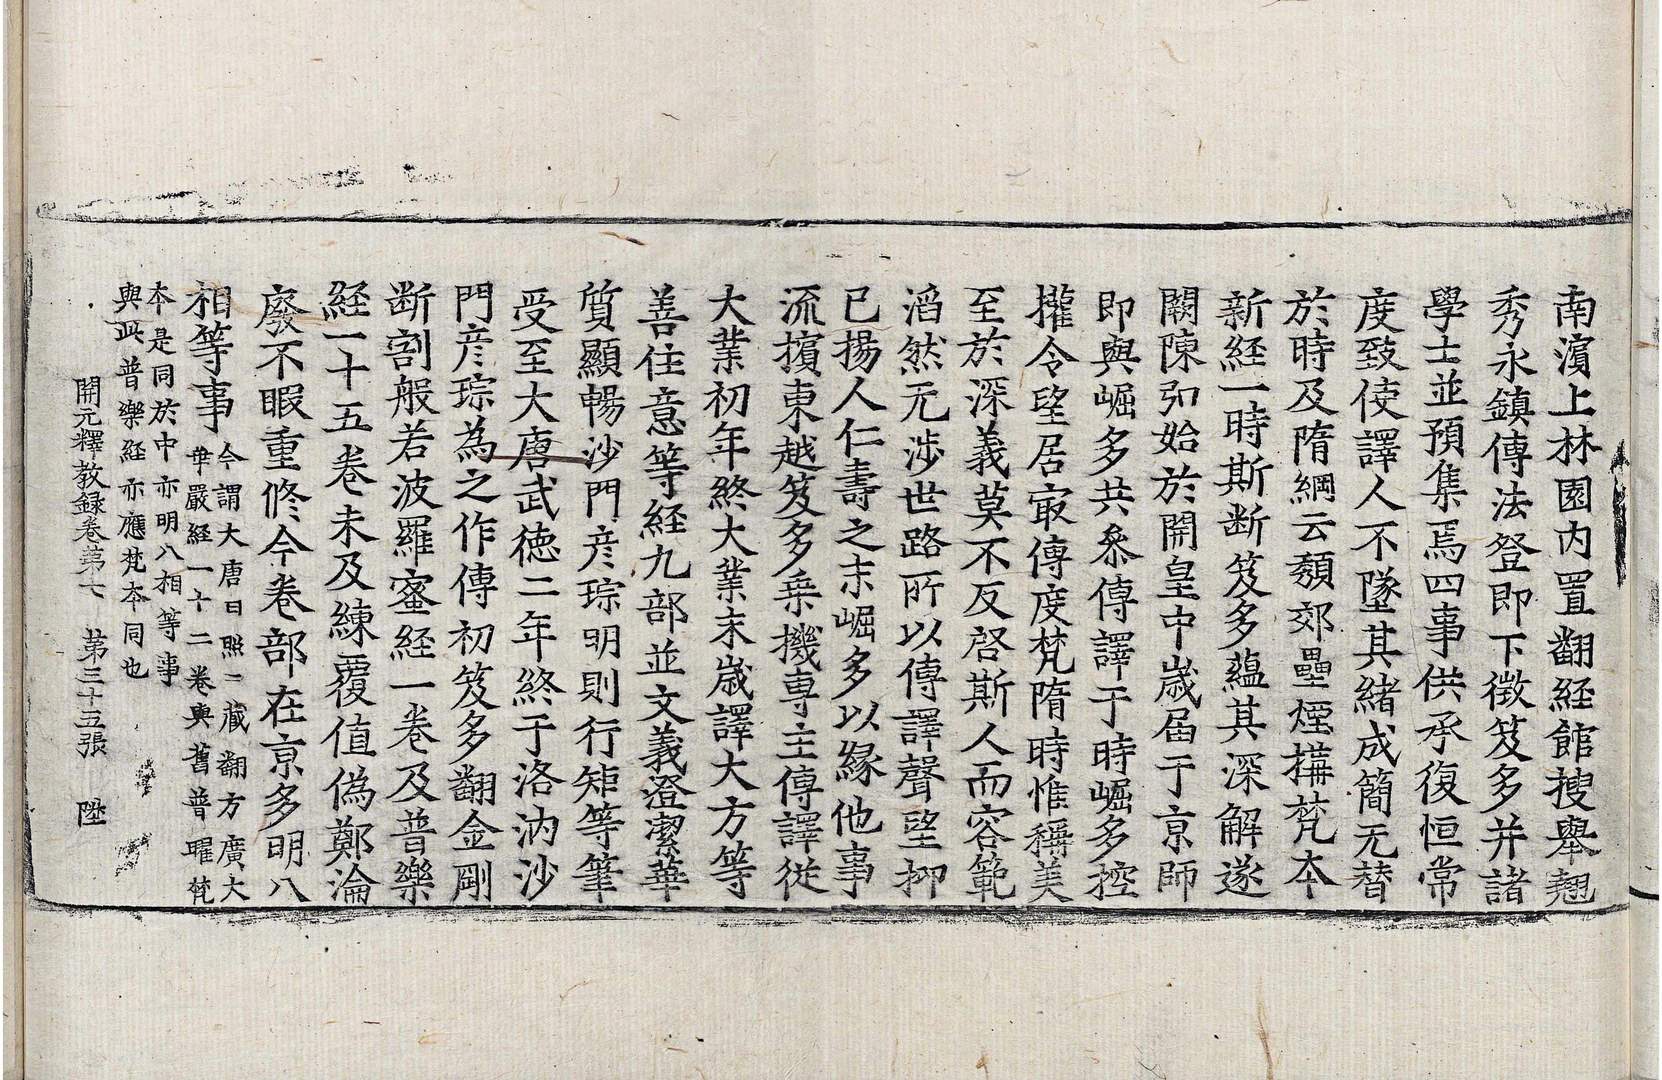 南濱上林園内置翻経館搜舉翹
秀永鎮傳法登即下徴笈多并諸
學士並預集焉四事供承復恒常
度致使譯人不墜其緒成簡无替
於時及隋綱云頹郊壘煙構梵本
新経一時斯断笈多蘊其深解遂
闕陳弘始於開皇中歳届于京師
即與崛多共叅傳譯于時崛多控
攉令望居㝡傳度梵隋時惟稱美
至於深義莫不反啓斯人而容範
滔然无涉世路所以傳譯聲望抑
已揚人仁壽之末崛多以縁他事
流擯東越笈多乗機專主傳譯從
大業初年終大業末歳譯大方等
善住意等経九部並文義澄潔華
質顯暢沙門彦琮明則行矩等筆
受至大唐武德二年終于洛汭沙
門彦琮為之作傳初笈多翻金剛
断割般若波羅蜜経一巻及普樂
経一十五巻未及練覆值偽鄭淪
廢不暇重修今巻部在京多明八
相等事今謂大唐日照二藏翻方廣大
華嚴経一十二巻與舊普曜梵
夲是同於中亦明八相等事
與此普樂経亦應梵夲同也
開元釋教録巻苐七 苐三十五張 陞